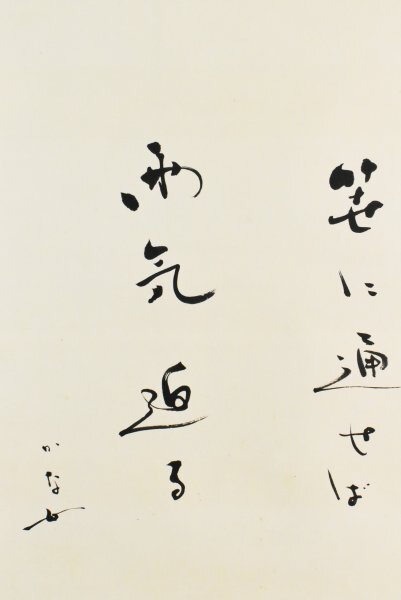 笹に通せば
雨気迫る
かな女